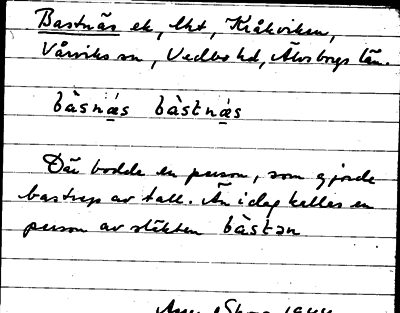 Bastnäs ek, lht, Kråkviken,
Vårviks sn, Vedbo hd, Älvsborgs län.
bàsnæ̀s bàstnæ̀s
Där bodde en person, som gjorde
bastrep av tall. Än idag kallas en
person av släkten bàstən